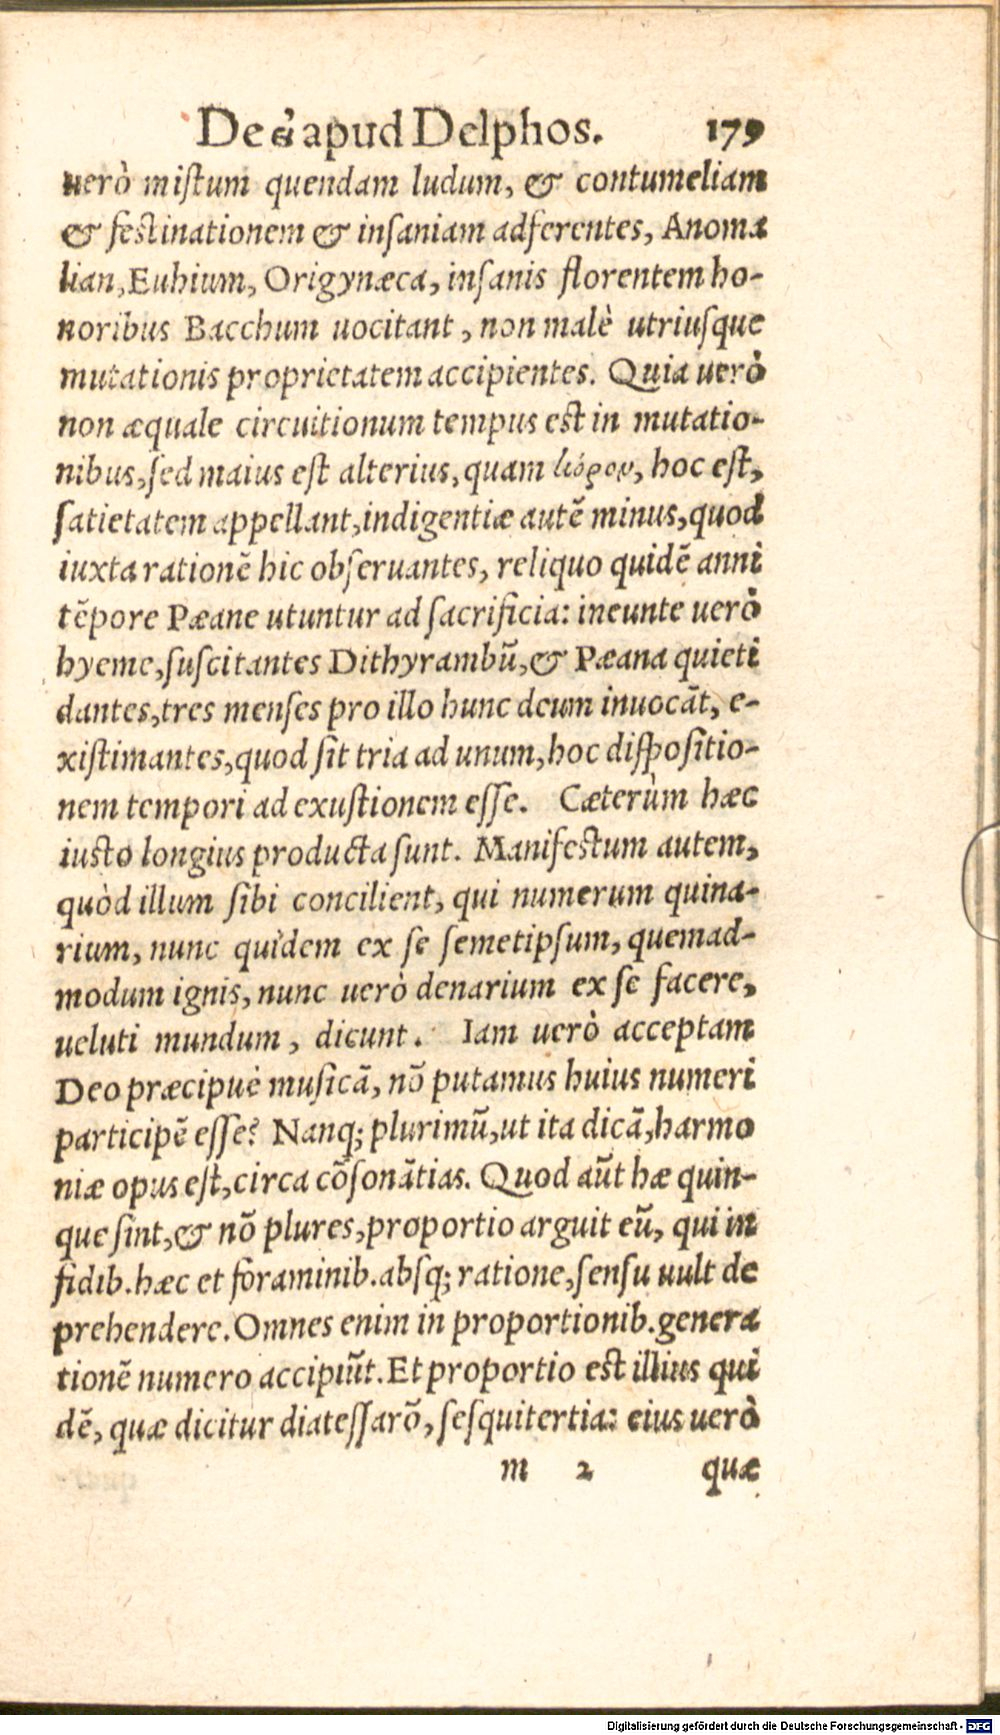 De ει apud Delphos. 179
uerò mistum quendam ludum, & contumeliam
& festinationem & insaniam adferentes, Anoma
lian, Euhium, Origynæca, insanis florentem ho-
noribus Bacchum uocitant, non malè utriusque
mutationis proprietatem accipientes. Quia uerò
non æquale circuitionum tempus est in mutatio-
nibus, sed maius est alterius, quam κόρον, hoc est,
satietatem appellant, indigentiæ autē minus, quod
iuxta rationē hic obseruantes, reliquo quidē anni
tēpore Pæane utuntur ad sacrificia: ineunte uerò
hyeme, suscitantes Dithyrambū, & Pæana quieti
dantes, tres menses pro illo hunc deum inuocāt, e-
xistimantes, quod sit tria ad unum, hoc dispositio-
nem tempori ad exustionem esse. Cæterùm hæc
iusto longius producta sunt. Manifestum autem,
quòd illum sibi concilient, qui numerum quina-
rium, nunc quidem ex se semetipsum, quemad-
modum ignis, nunc uerò denarium ex se facere,
ueluti mundum, dicunt. Iam uerò acceptam
Deo præcipuè musicā, nō putamus huius numeri
participē esse? Nanq; plurimū, ut ita dicā, harmo
niæ opus est, circa cōsonātias. Quod aūt hæ quin-
que sint, & nō plures, proportio arguit eū, qui in
fidib. hæc et foraminib. absq; ratione, sensu uult de
prehendere. Omnes enim in proportionib. genera
tionē numero accipiūt. Et proportio est illius qui
dē, quæ dicitur diatessarō, sesquitertia: eius uerò
m 2 quæ
Digitalisierung gefördert durch die Deutsche Forschungsgemeinschaft - DFG